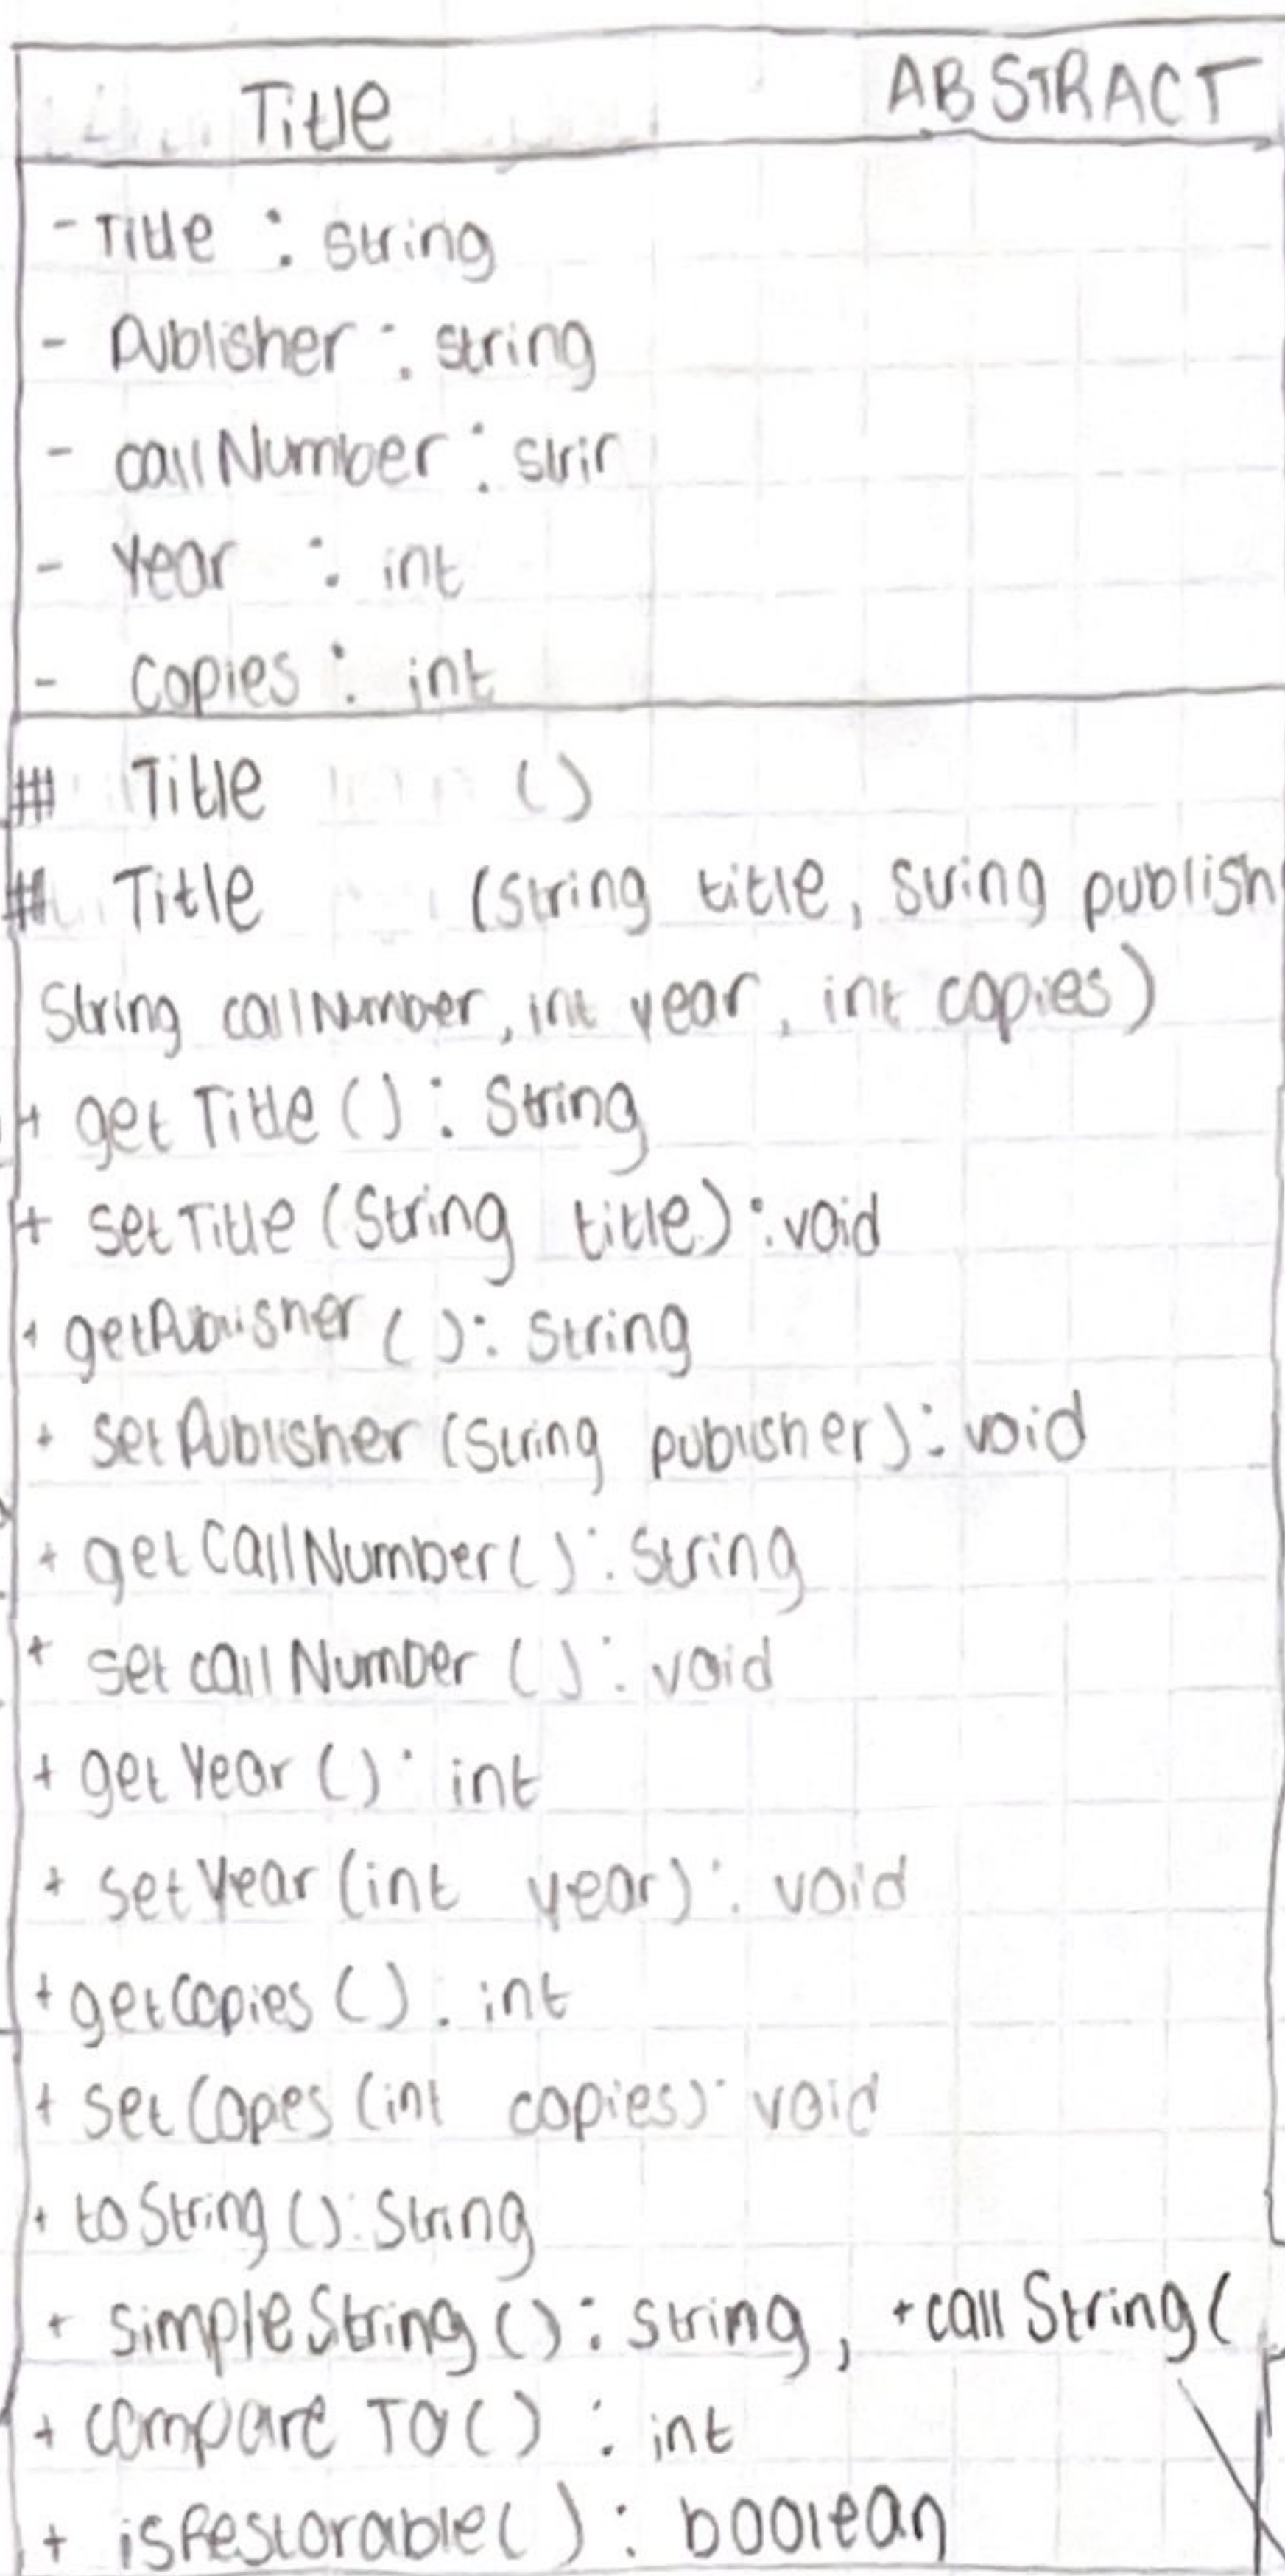 Title ABSTRACT
- Title : string
- Publisher : string
- callNumber : strin
- Year : int
- Copies : int
# Title ()
# Title (String title, String publish
String callNumber, int year, int copies)
+ getTitle() : String
+ setTitle (String title) : void
+ getPublisher () : String
+ setPublisher (String publisher) : void
+ getCallNumber() : String
+ setcallNumber () : void
+ getYear () : int
+ setYear (int year) : void
+ getCopies () : int
+ setCopes (int copies) : void
+ toString () : String
+ simpleString () : string, + callString (
+ compareTo() : int
+ isRestorable() : boolean